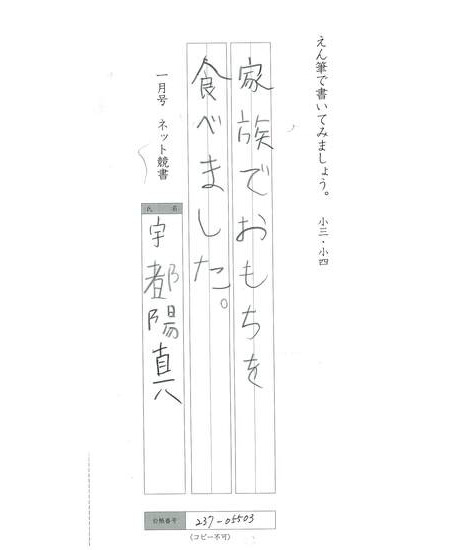 えん筆で書いてみましょう。 小三・小四
家族でおもちを
食べました。
一月号 ネット競書
氏名
宇都陽真
会員番号 237-05503
(コピー不可)